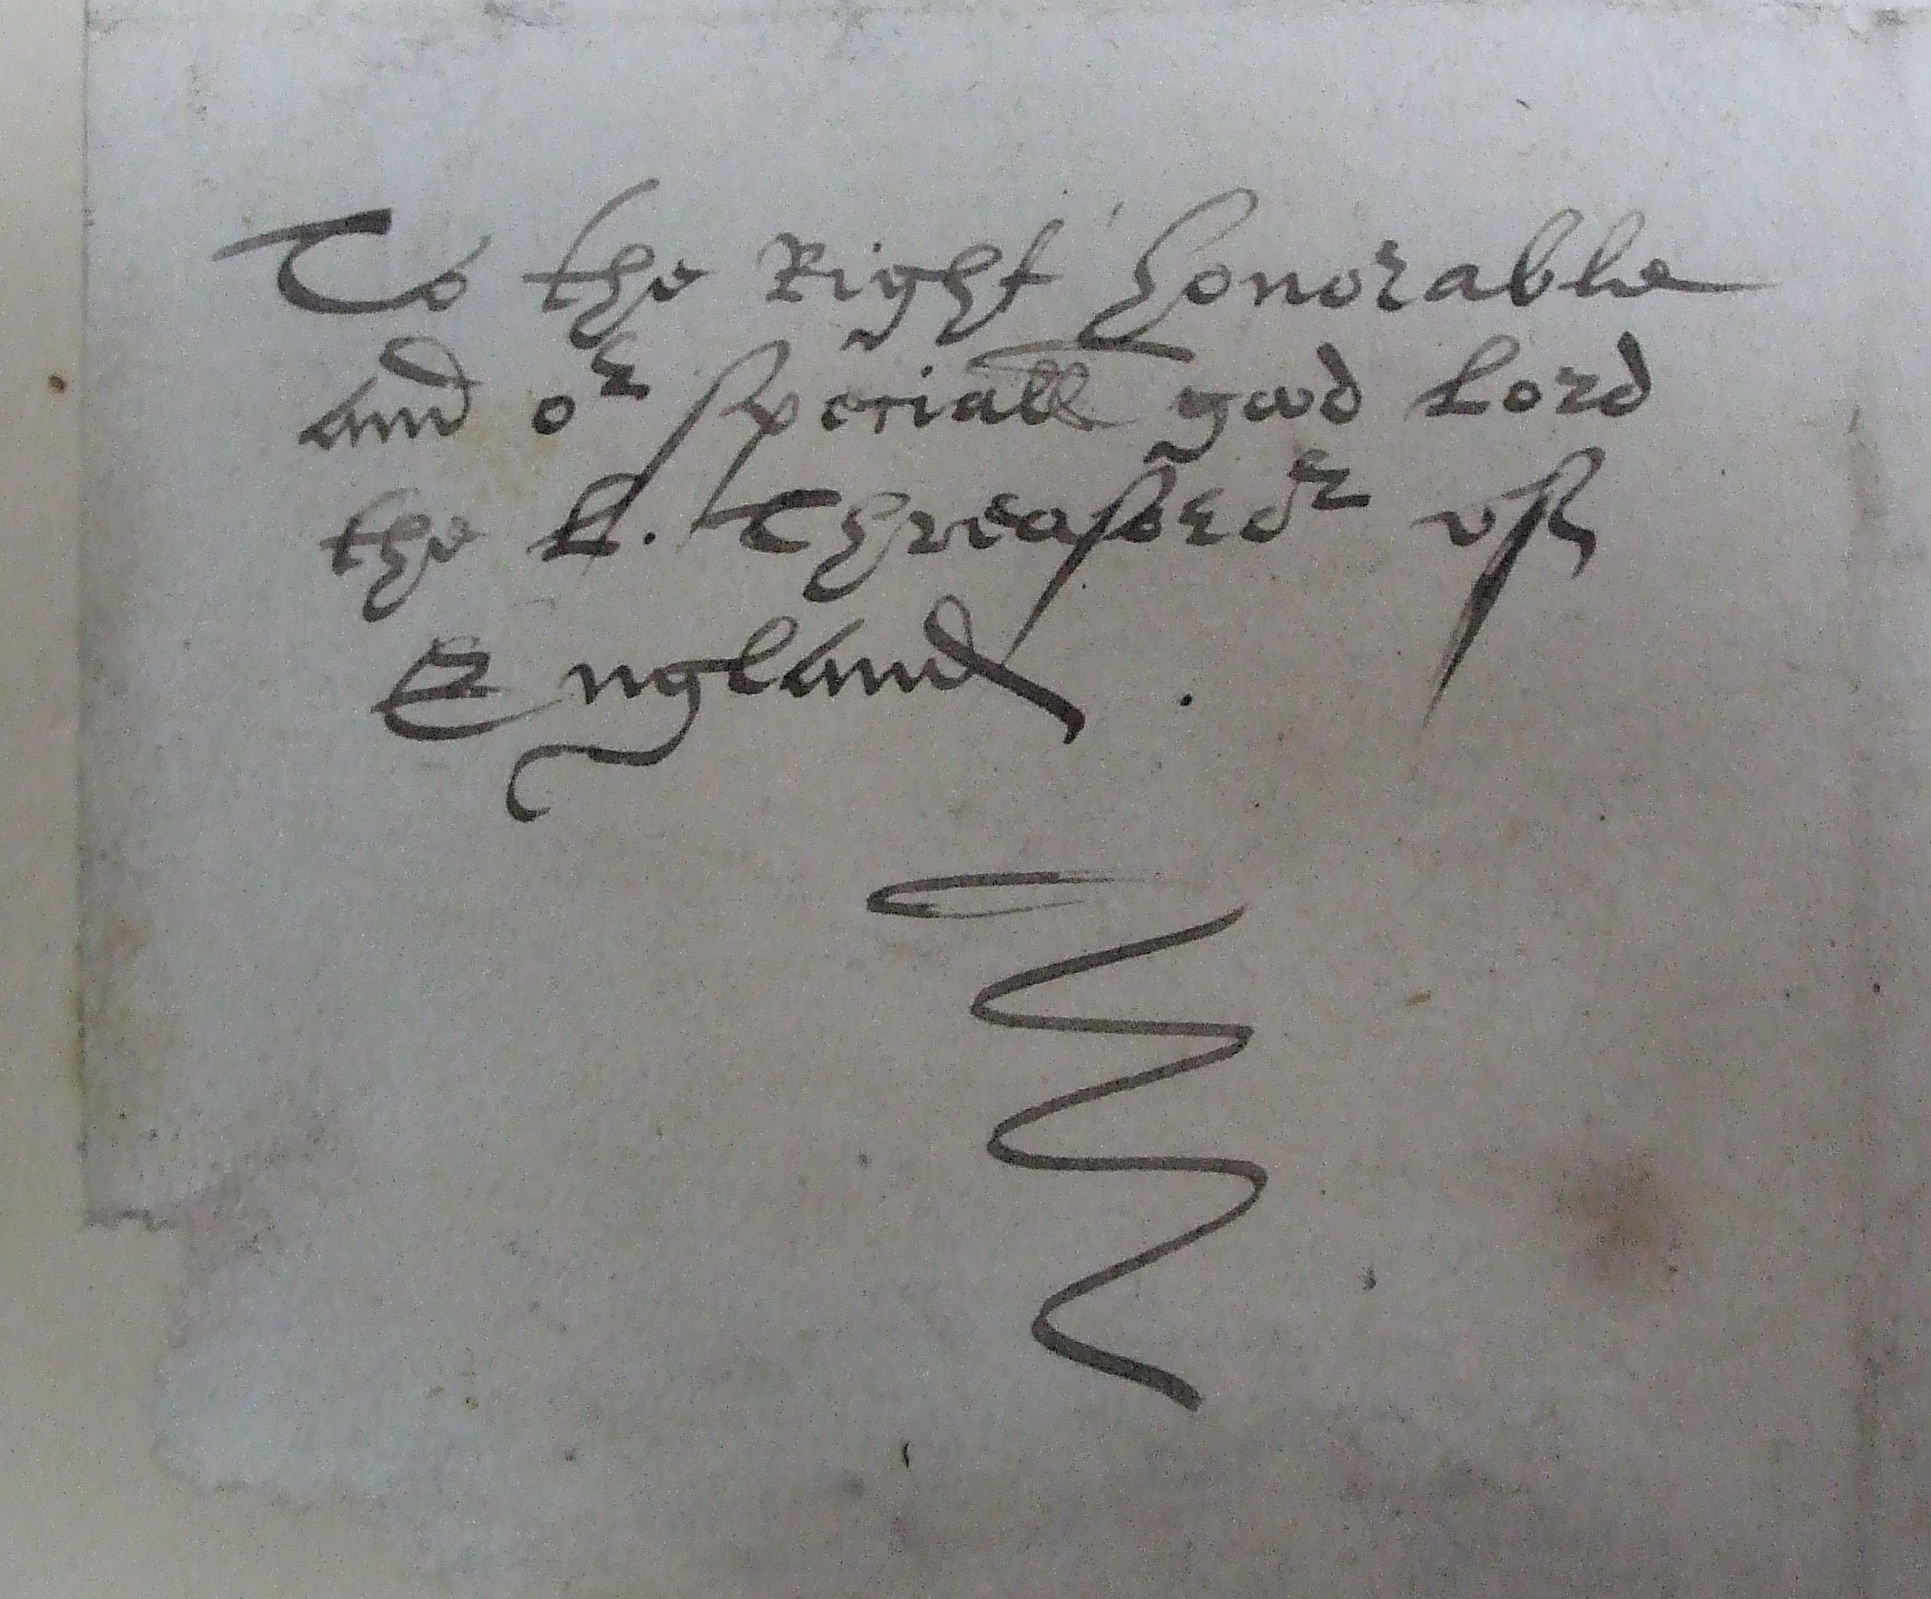 To the Right honorable
and oʳ speciall good Lord
the L. Threasorᵉʳ of
England .